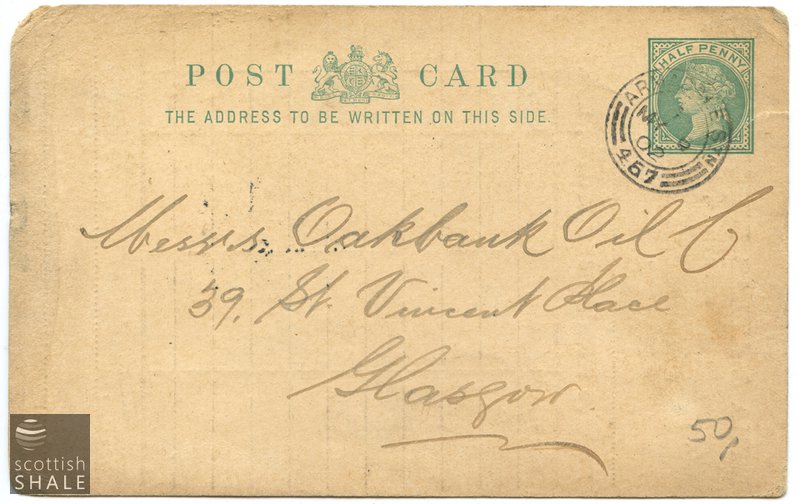 POST CARD
THE ADDRESS TO BE WRITTEN ON THIS SIDE.
HALF PENNY
02
467
Messrs Oakbank Oil C
39, St. Vincent Place
Glasgow
50
scottish
SHALE